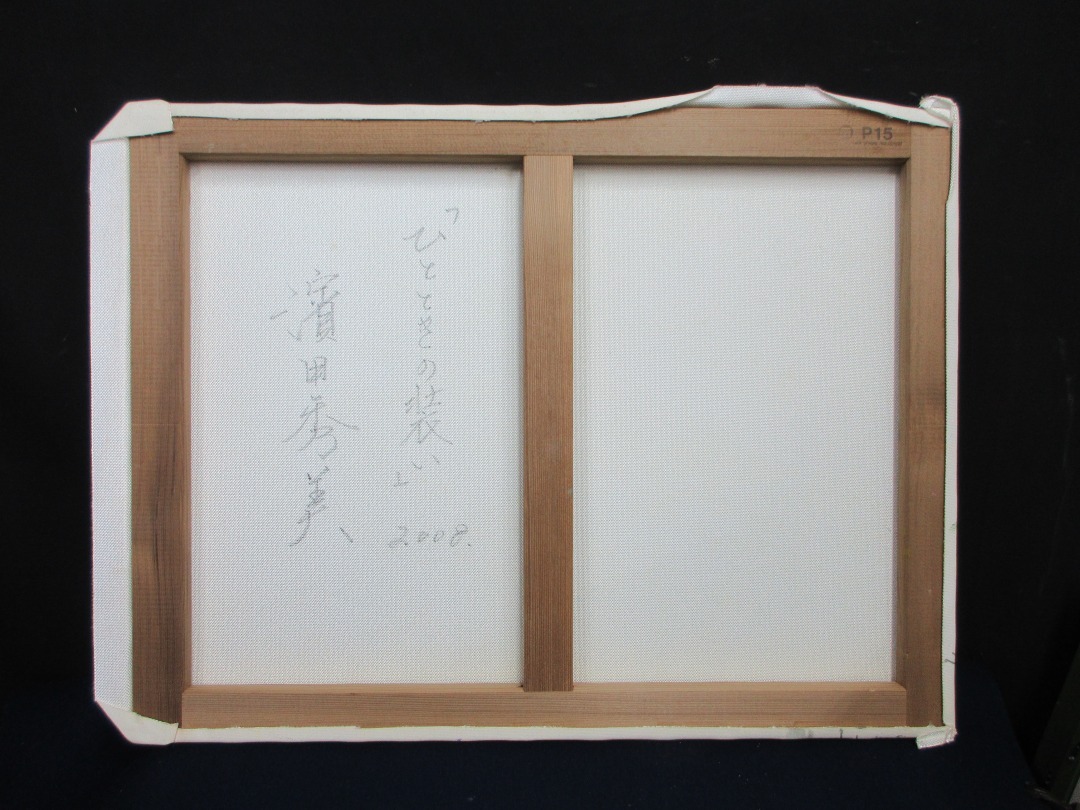 「ひとときの装い」
2008.
濱田秀美
P15